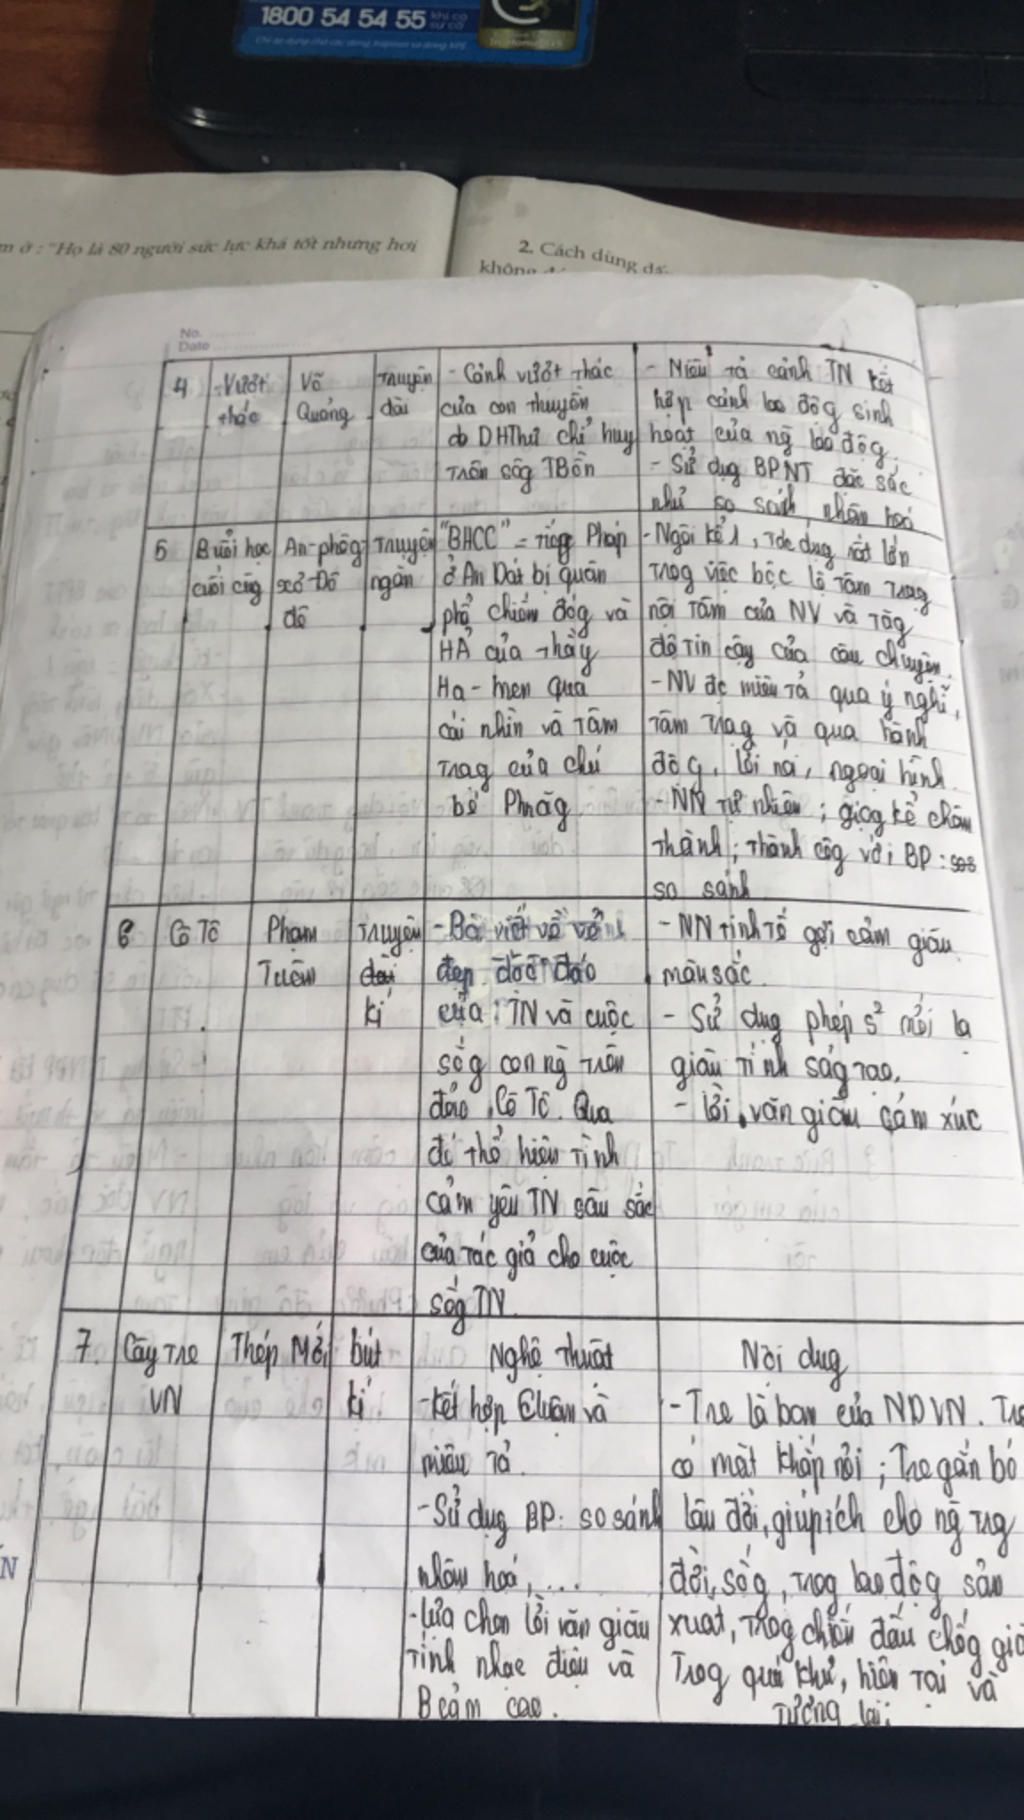 1800 54 54 55 khi có sự cố
m ở : "Họ là 80 người sức lực khá tốt nhưng hơi
2. Cách dùng dấ
không
No.
Date
4
Vượt
thác
Võ
Quảng
Truyện
dài
- Cảnh vượt thác
của con thuyền
do DHThư chỉ huy
Trên sôg TBồn
- Miêu tả cảnh TN kết
hợp cảnh lao độg sinh
hoạt của ng lao độg.
- Sử dụg BPNT đặc sắc
như so sánh, nhân hoá
5
Buổi học
cuối cùg
An-phôg
xơ-Đô
đê
Truyện
ngắn
"BHCC" = Tiếg Pháp
ở An Dát bị quân
phổ chiếm đóg và
HẢ của Thầy
Ha-men qua
cái nhìn và Tâm
Trạg của chú
bé Phrăg
- Ngôi kể 1, Tác dụg rất lớn
Trog việc bộc lộ Tâm Trạg
nội Tâm của NV và Tăg
độ Tin cậy của câu chuyện.
- NV đc miêu Tả qua ý nghĩ,
Tâm Trạg và qua hành
độg, lời nói, ngoại hình.
- NN Tự nhiên ; giọg kể chân
Thành ; Thành côg với BP :
so sánh
6
Cô Tô
Phạm
Tuân
Truyện
kí
- Bài viết về vẻ
đẹp độc đáo
của TN và cuộc
sốg con ng Trên
đảo Cô Tô. Qua
đó Thể hiện Tình
cảm yêu TN sâu sắc
của Tác giả cho cuộc
sốg TN.
- NN tinh Tế gợi cảm giàu
màu sắc.
- Sử dụg phép s² mới lạ
giàu Tính ság Tạo.
- Lời văn giàu cảm xúc
7.
Cây Tre
VN
Thép Mới
bút
kí
Nghệ Thuật
- Kết hợp Cluận và
miêu Tả.
- Sử dụg BP: so sánh
nhân hoá, ...
- Lựa chọn lời văn giàu
Tính nhạc điệu và
Bcảm cao.
Nội dug
- Tre là bạn của NDVN. Tre
có mặt khắp nơi ; Tre gắn bó
lâu đời, giúp ích cho ng Trg
đời sốg, Trog lao độg sản
xuất, Trog chiến đấu chốg giặ
Trog quá khứ, hiện Tại và
Tươg lai